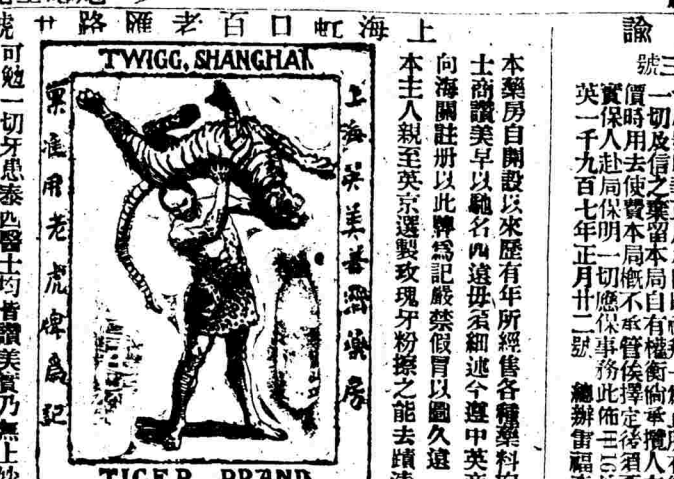 諭
三號
一切及信之棄留本局自有權衡倘承攬人
價時用去使費本局概不承管俟擇定後須
實保人赴局保明一切應保事務此佈
英一千九百七年正月廿二號 總辦雷福
上海虹口百老匯路廿號
本藥房自開設以來歷有年所經售各種藥料
士商讚美早以馳名四遠毋須細述今遵中英商
向海關註册以此牌爲記嚴禁假冒以圖久遠
本主人親至英京選製玫瑰牙粉擦之能去蹟
TWIGG, SHANGHAI
上海英美善濟藥房
稟准用老虎牌爲記
TIGER BRAND
可勉一切牙患泰西醫士均皆讚美實乃無上妙